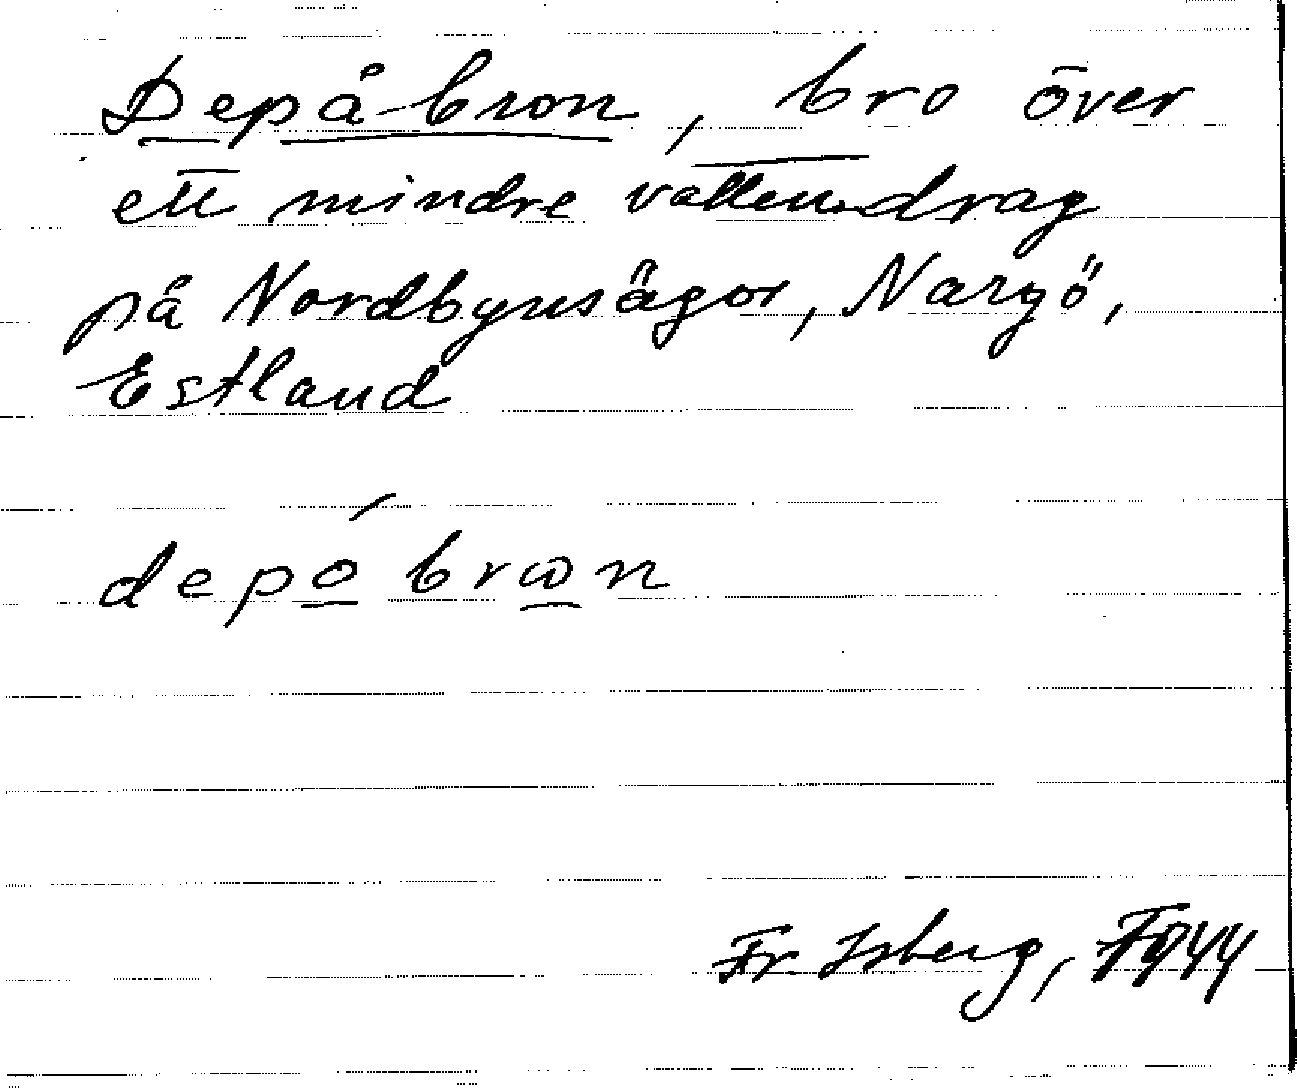 Depå-bron, bro över
ett mindre vattendrag
på Nordbynsägor, Nargö,
Estland
depo bron
Fr Isberg, 1944